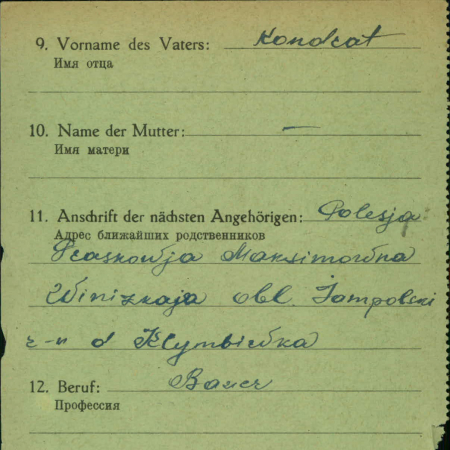 9. Vorname des Vaters: Kondrat
Имя отца
10. Name der Mutter: —
Имя матери
11. Anschrift der nächsten Angehörigen: Polesja
Адрес ближайших родственников
Praskowja Maksimowna
Winizkaja obl. Jampolski
r-n d Klymbiwka
12. Beruf: Bauer
Профессия